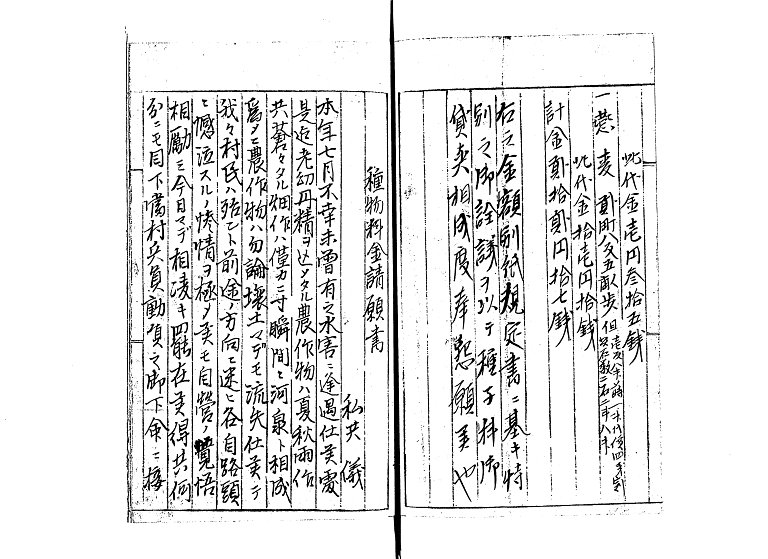 此代金壱円参拾五銭
一薏麦 弐町八反五畝歩 但
此代金拾壱円拾銭
計金弐拾弐円拾七銭
右之金額別紙規定書ニ基キ特
別之御詮議ヲ以テ種子料御
貸与相成度奉懇願候也
種物料金請願書
私共儀
本年七月不幸未曽有之水害ニ逢遇仕候処
是迄老幼丹精ヲ込メタル農作物ハ夏秋両作
共蒼々タル畑作ハ僅カニ寸瞬間ニ河泉ト相成
為メニ農作物ハ勿論壌土マデモ流失仕候テ
我々村民ハ殆ント前途ノ方向ニ迷ヒ各自路頭
ニ憾泣スルノ惨情ヲ極メ候モ自営ノ覚悟
相励ミ今日マデ相凌キ罷在候得共何
分ニモ目下当村共負動項之御下命ニ接